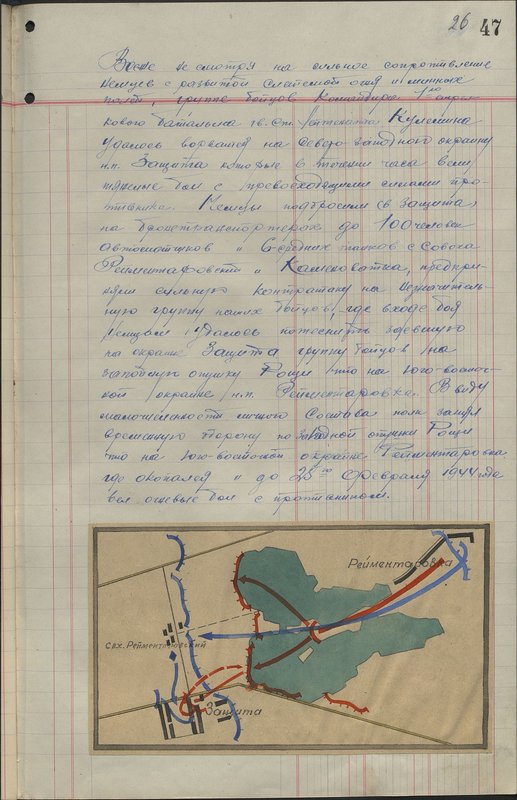 26 47
Все же не смотря на сильное сопротивление
немцев с развитой системой огня и минные
поля, группе бойцов командира 1го стрел-
кового батальона гв. ст. лейтенанта Кулешина
удалось ворваться на северо-западную окраину
н.п. Защита которые в течении часа вели
тяжелые бои с превосходящими силами про-
тивника. Немцы подбросили в Защита,
на бронетранспортерах до 100 человек
автоматчиков и 6 средних танков с
Рейментаровский и Каменоватка, предпри-
няли сильную контратаку на незначитель-
ную группу наших бойцов, где входе боя
немцам удалось потеснить засевшую
на окраине Защита группу бойцов на
западную опушку Рощи что на юго-восточ-
ной окраине н.п. Рейментаровка. Ввиду
малочисленности личного состава полк занял
временную оборону по западной опушки Рощи
что на юго-восточной окраине Рейментаровка
где окопался и до 25го февраля 1944 года
вел огневые бои с противником.
Рейментаровка
свх. Рейментаровский
Защита